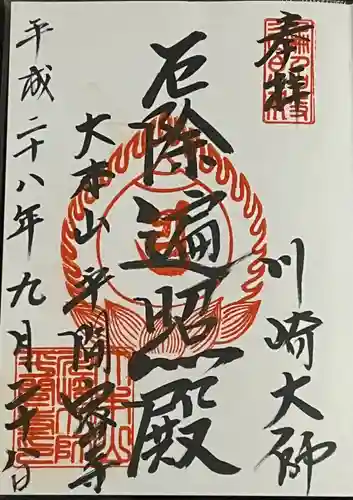 奉拝
川崎大師
厄除遍照殿
大本山 平間寺
平成二十八年九月二十日